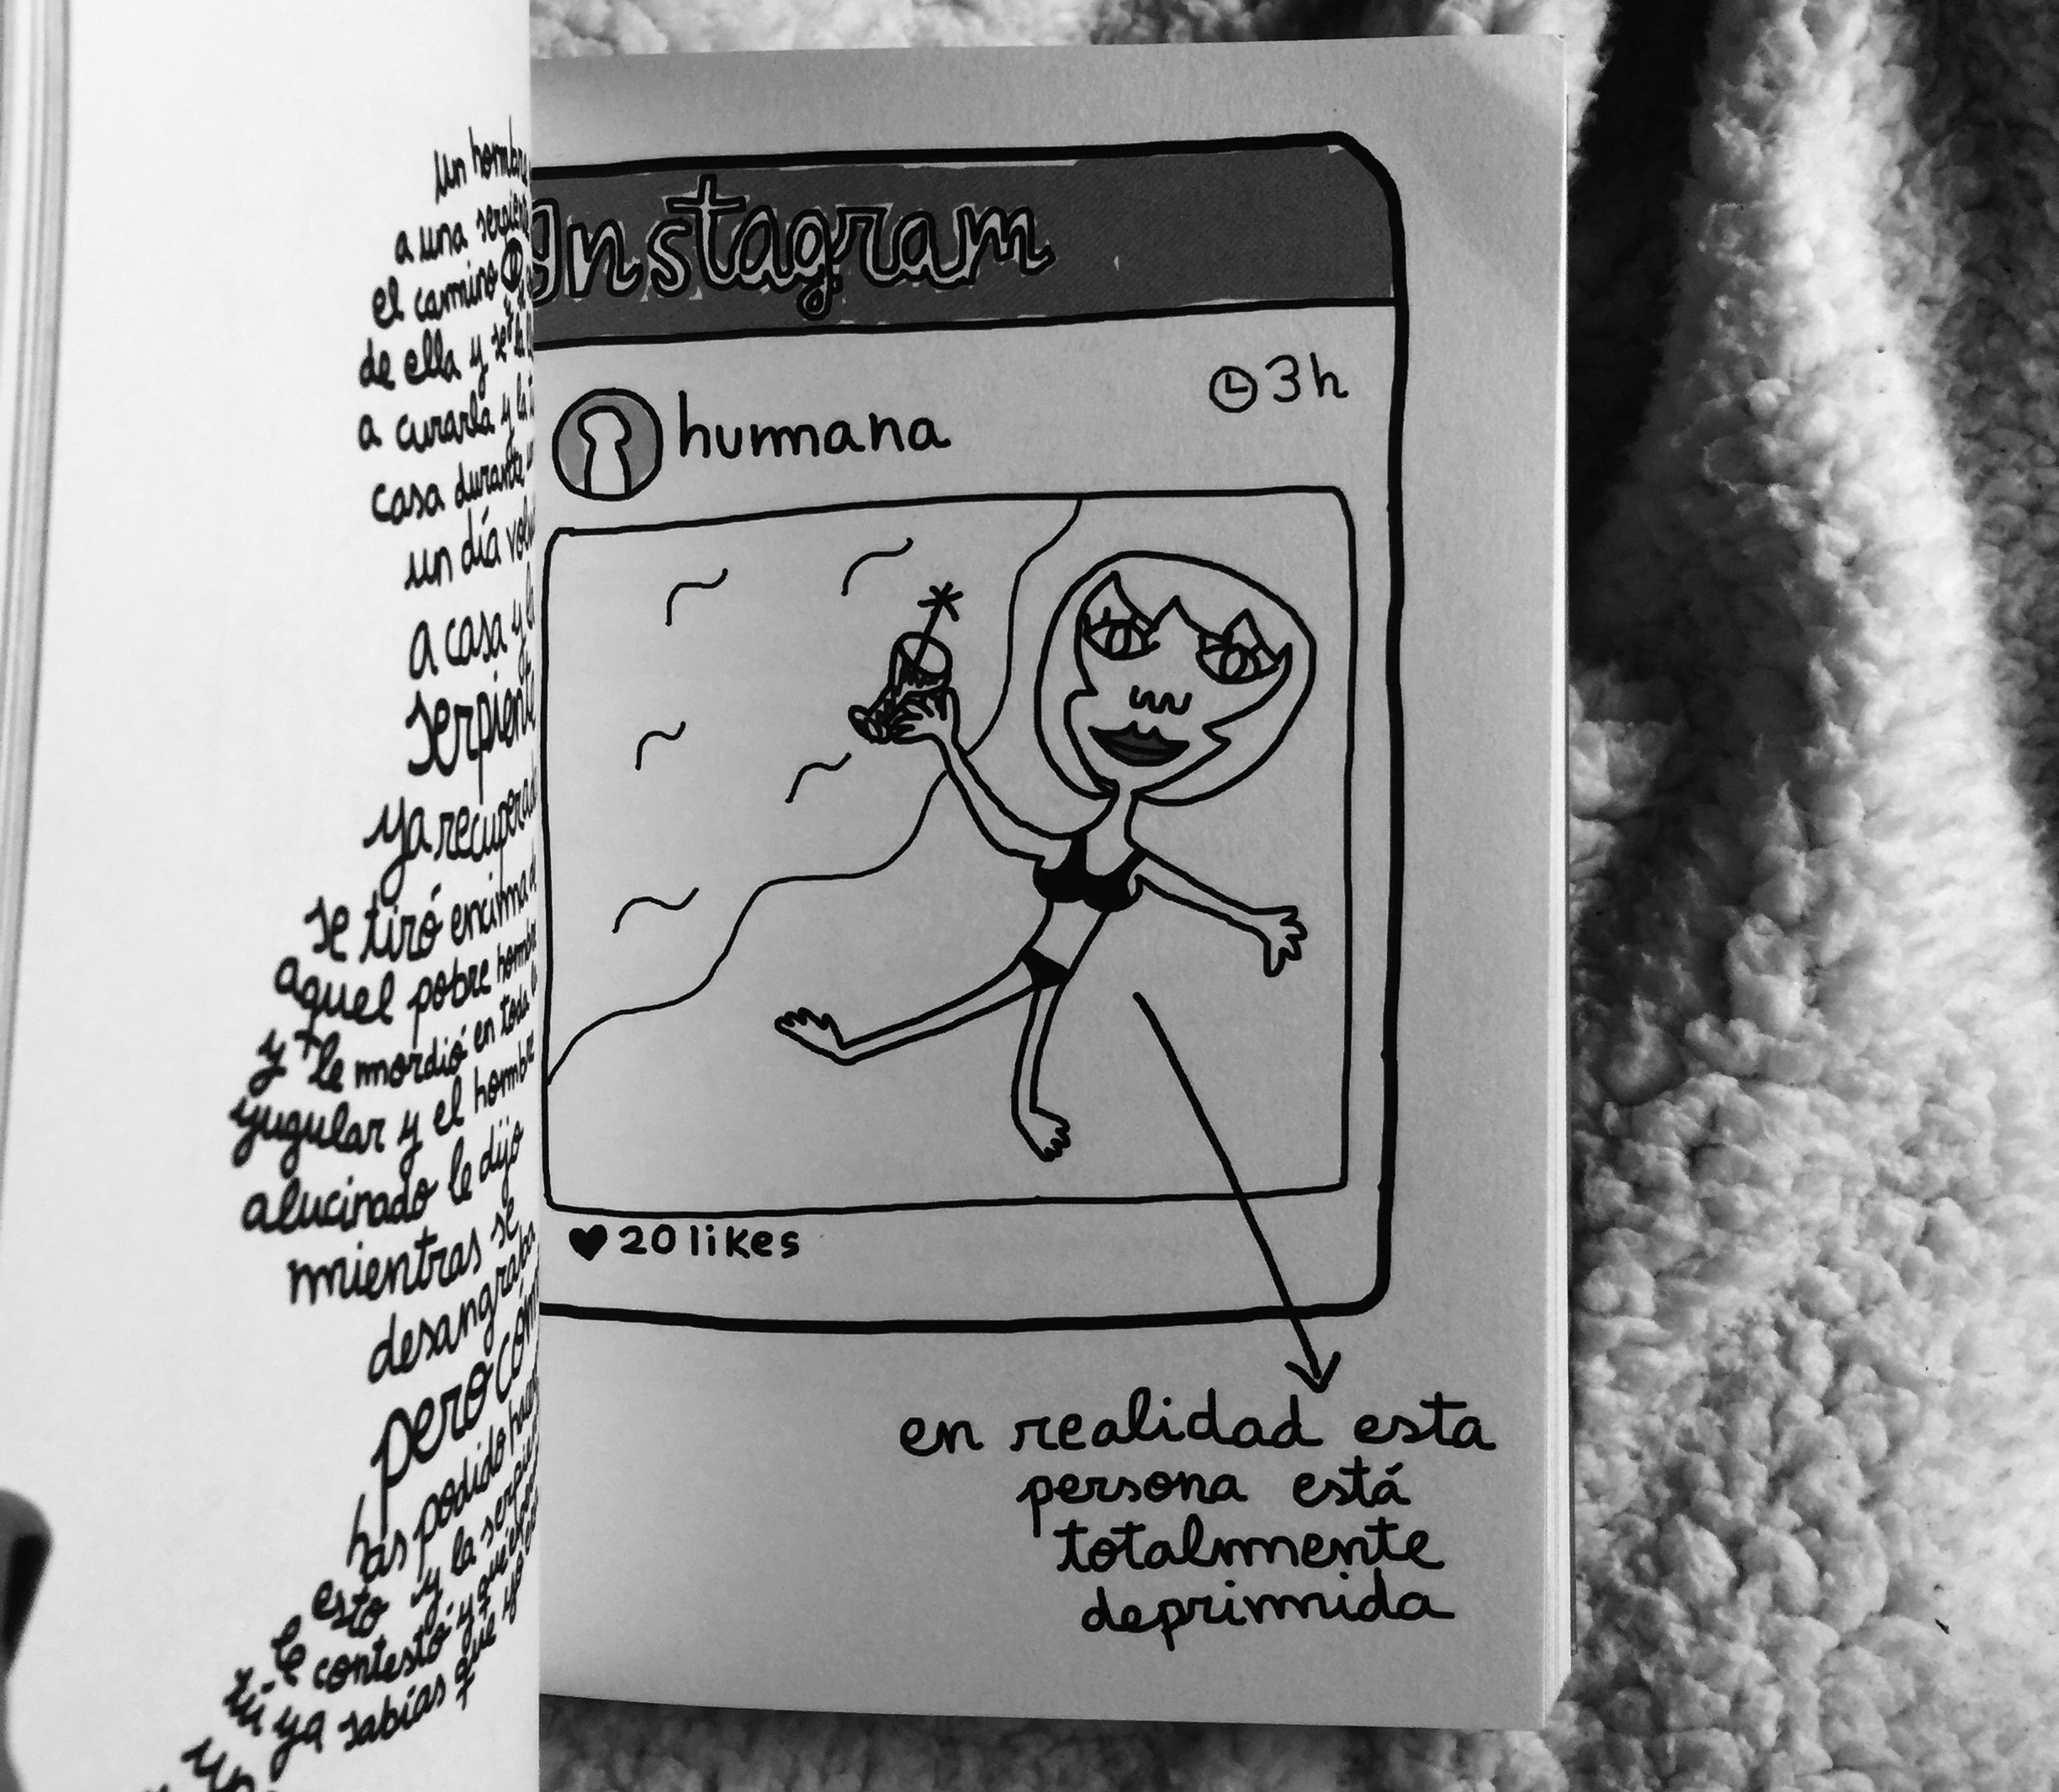 un hombre
a una
el camino
de ella y se
a curarla y la
casa durante
un día
a casa y
serpiente
ya
se tiró encima
aquel pobre hombre
y le mordió en toda
yugular y el hombre
alucinado le dijo
mientras se
desangraba
pero
has podido
esto y la
le contestó y
tú ya sabías que yo
Instagram
humana
3h
20 likes
en realidad esta
persona está
totalmente
deprimida